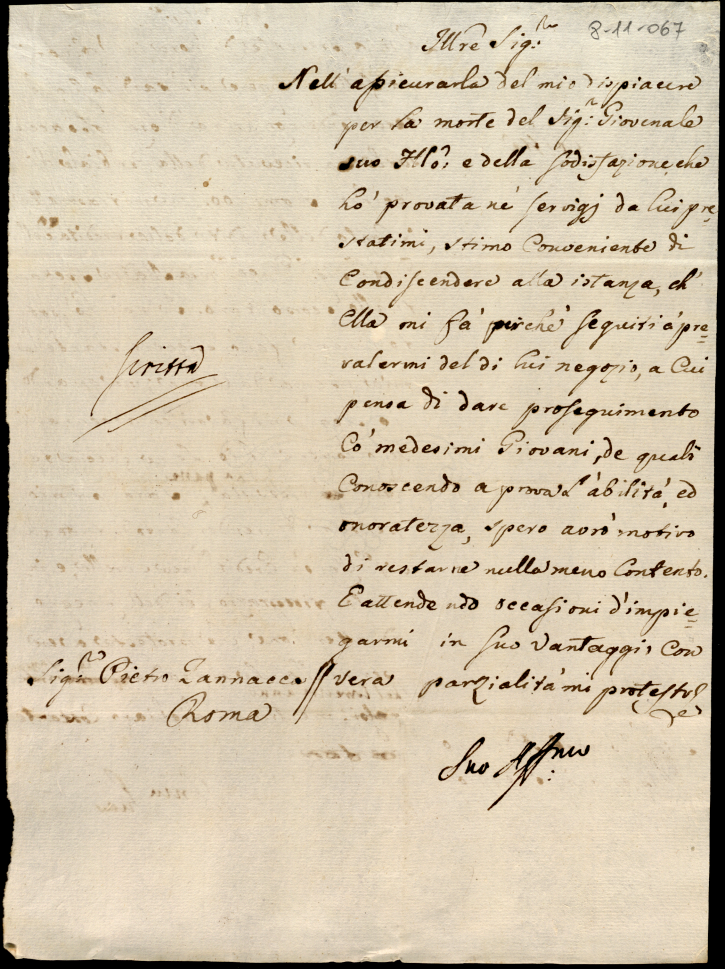 8-11-067
Illre Sig.re
Nell'assicurarla del mio dispiacere
per la morte del Sig.r Giovenale
suo Fllo, e della sodisfazione, che
hò provata ne' servigj da lui pre=
statimi, stimo Conveniente di
Condiscendere alla istanza, ch'
Ella mi fà perchè seguiti à pre=
valermi del di lui negozio, a Cui
pensa di dare proseguimento
Co' medesimi Giovani, de quali
Conoscendo a prova L'abilità, ed
onoratezza, spero avrò motivo
di restarne nulla meno Contento.
E attendendo occasioni d'impie=
garmi in suo vantaggio, Con
vera parzialità mi protesto
Scritta
Sig.r Pietro Zannacca //
Roma
Suo Affmo